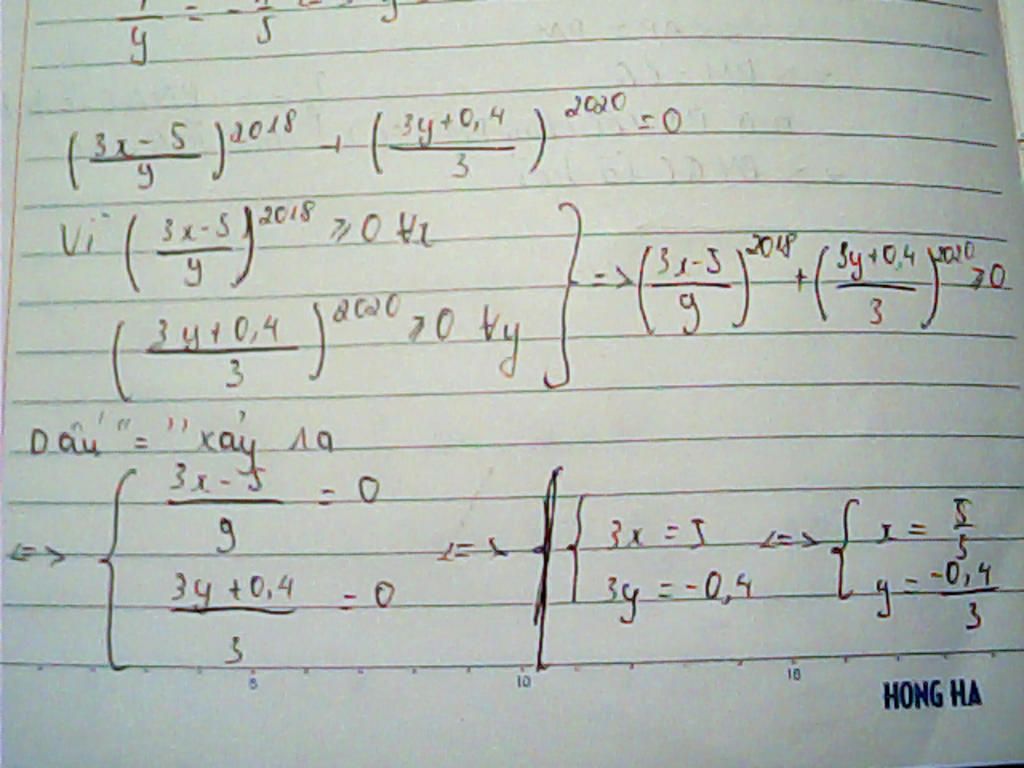 y = - 5
(3x - 5 / 9)^2018 + (3y + 0,4 / 3)^2020 = 0
Vì (3x - 5 / 9)^2018 ≥ 0 ∀x
(3y + 0,4 / 3)^2020 ≥ 0 ∀y } => (3x - 5 / 9)^2018 + (3y + 0,4 / 3)^2020 ≥ 0
Dấu "=" xảy ra
<=> { 3x - 5 / 9 = 0 <=> { 3x = 5 <=> { x = 5/3
3y + 0,4 / 3 = 0 3y = -0,4 y = -0,4 / 3
5 10 15
HONG HA